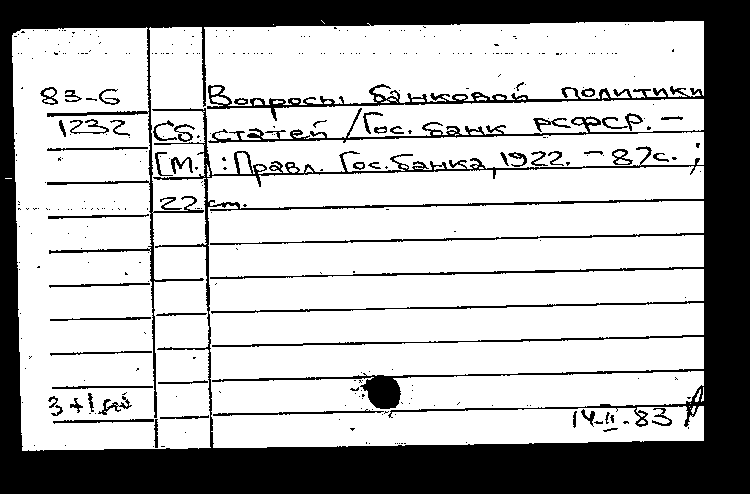 83-6 Вопросы банковой политики
1232 Сб. статей / Гос. банк РСФСР. –
[М.] : Правл. Гос. банка, 1922. – 87с. ;
22 см.
3 + 1
14-II-83